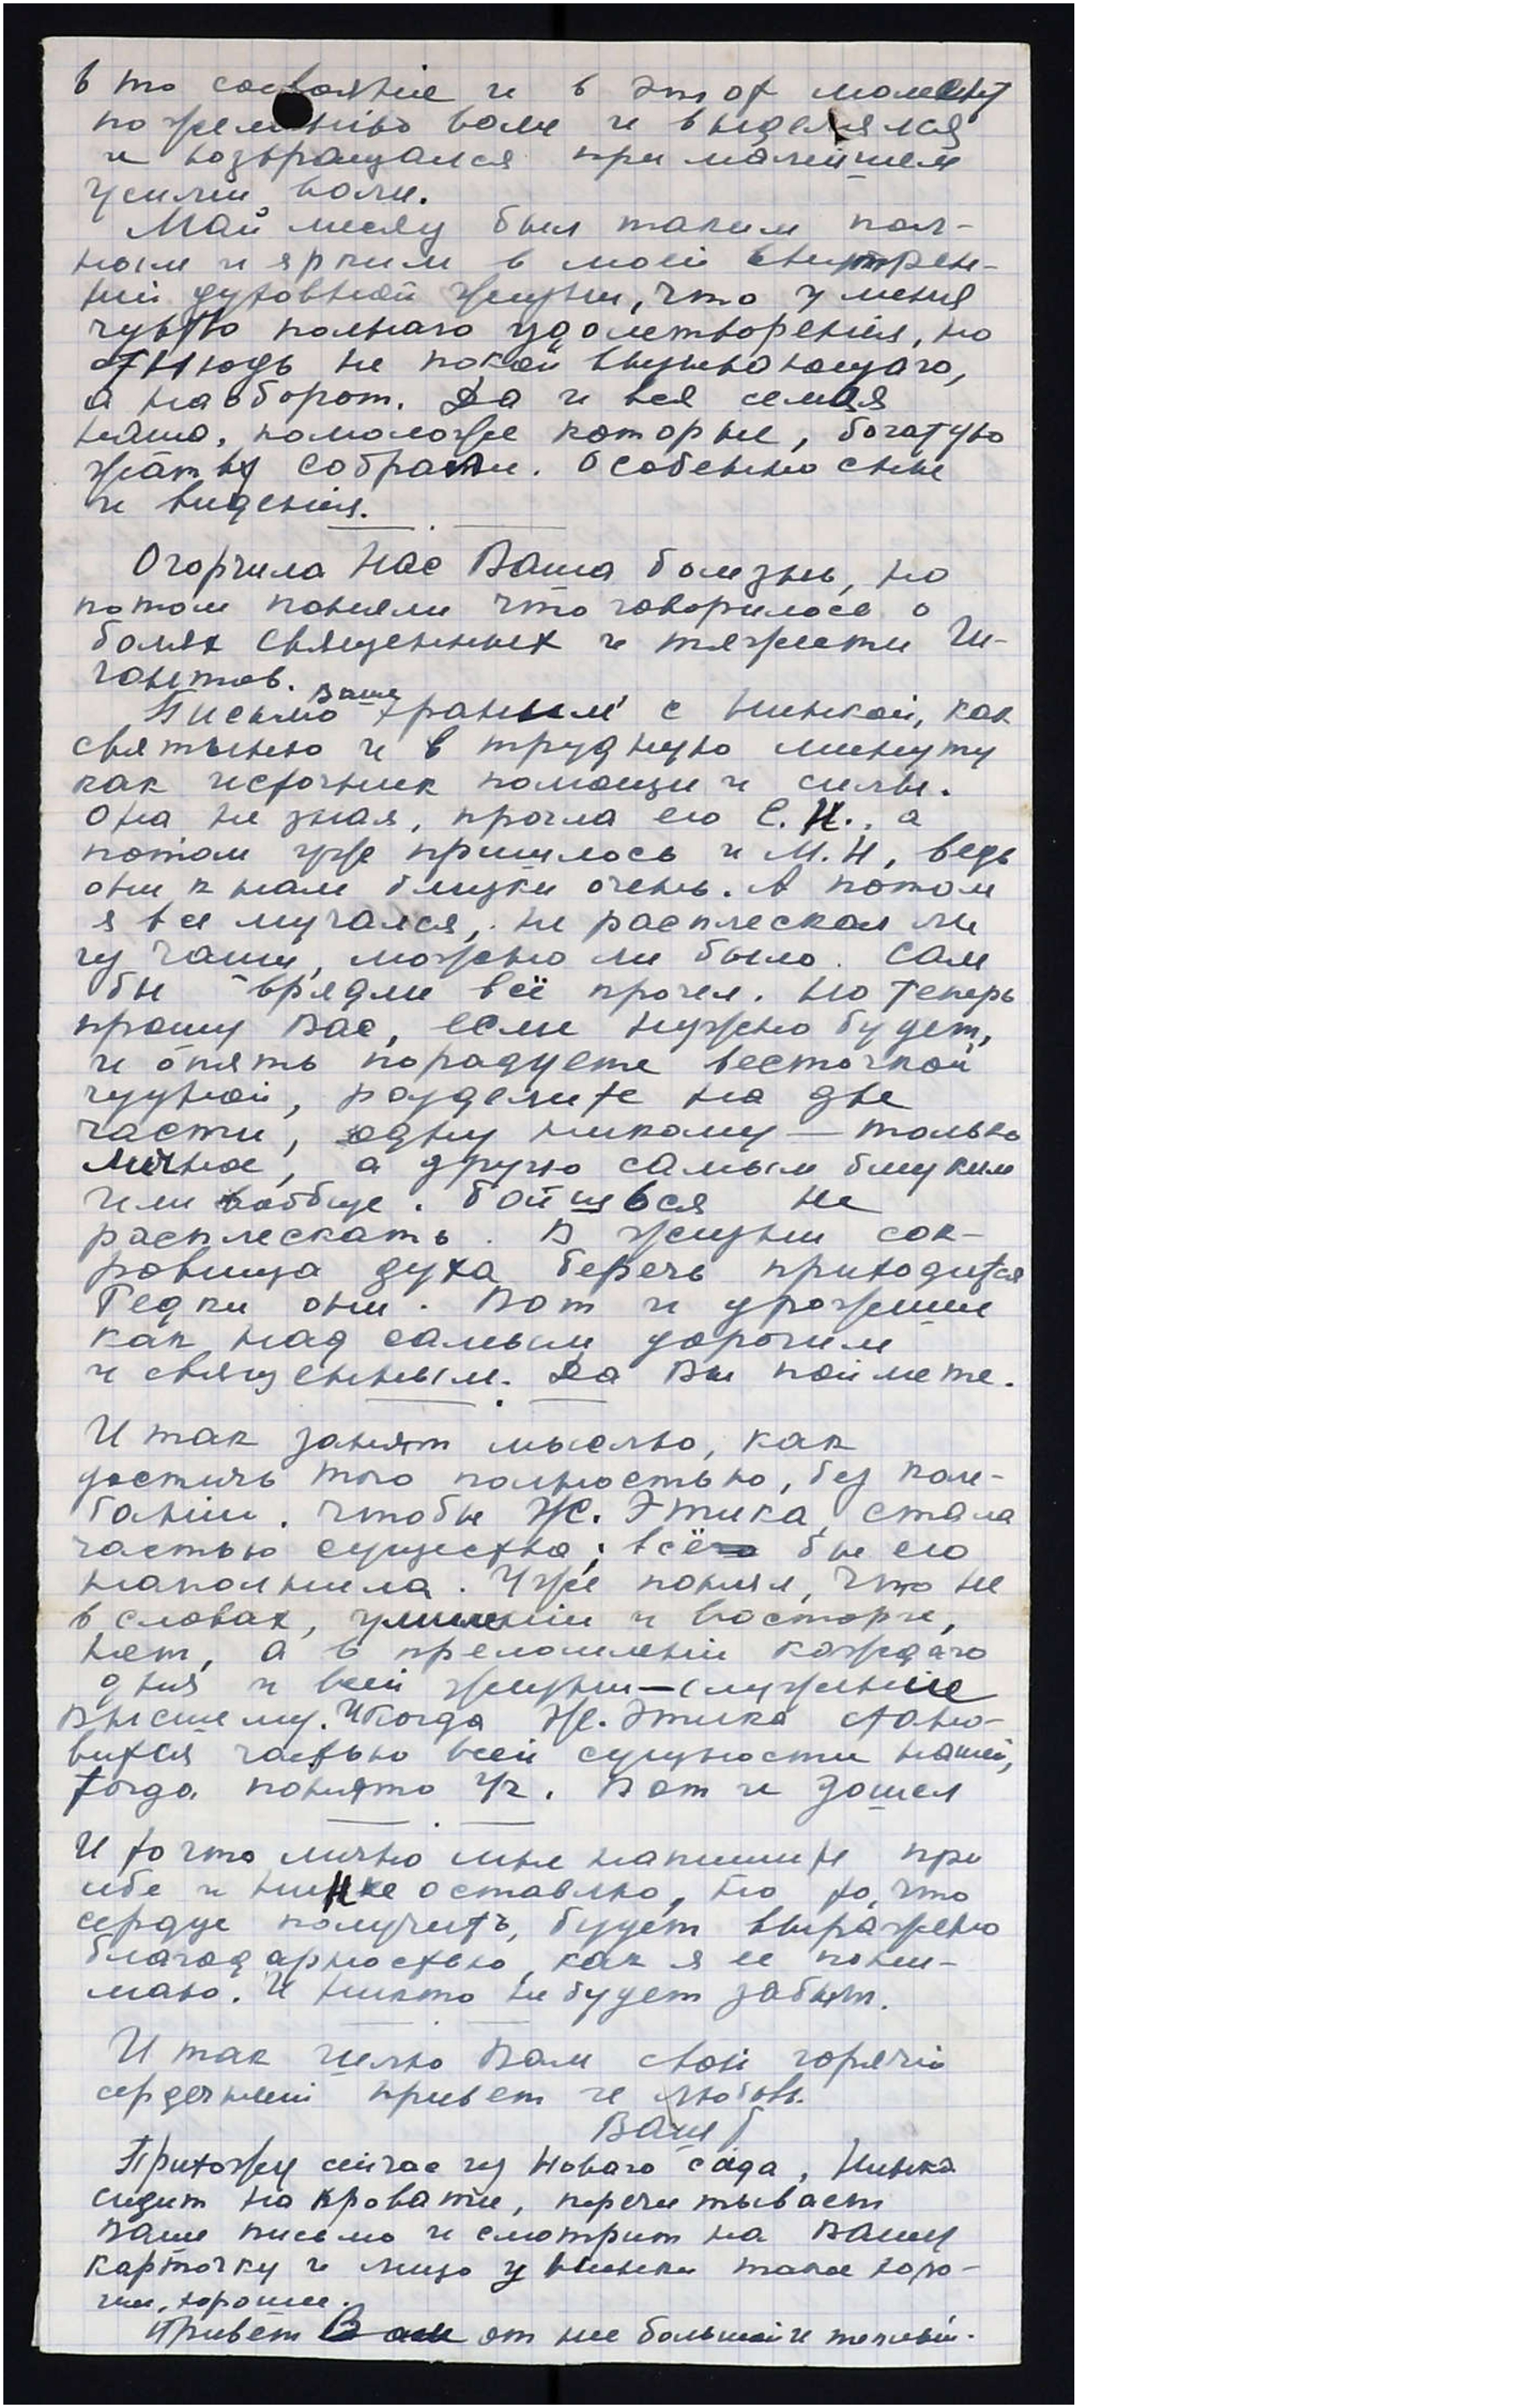 в то состояние и в этот момент
по желанiю воли и выделялся
и возвращался при малейшем
усилии воли.
Май месяц был таким пол-
ным и ярким в моей внутрен-
ней духовной жизни, что у меня
чувство полнаго удолетворенiя, но
отнюдь не покой вызывающаго,
а наоборот. Да и вся семья
наша, помоложе которые, богатую
жатву собрали. Особенно сны
и виденiя.
Огорчила нас Ваша болезнь, но
потом поняли что говорилось о
болях священных и тяжести Ги-
гантов.
Письмо Ваше храним с Нинкой, как
святыню и в трудную минуту
как источник помощи и силы.
Она не зная, прочла его С.Н., а
потом уже пришлось и М.Н, ведь
они к нам близки очень. А потом
я все мучался, не расплескал ли
чу чаши, можно ли было. Сам
бы врядли всё прочел. Но теперь
прошу Вас, если нужно будет,
и опять порадуете весточкой
чудной, разделите на две
части, одну никому — только
личное, а другую самым близким
или вообще. Боишься не
расплескать. В жизни сок-
ровища духа беречь приходится
Редки они. Вот и дрожишь
как над самым дорогим
и священным. Да Вы поймете.
Итак занят мыслью, как
достичь того полностью, без коле-
банiй. Чтобы Ж. Этика стала
частью существа; всё бы его
наполнила. Уже понял, что не
в словах, умиленiи и восторге,
нет, а в преломленiи каждаго
дня и всей жизни — служенiие
Высшему. И когда Ж. Этика стано-
вится частью всей сущности нашей,
тогда понято Уч. Вот и зашел
И то что лично мне напишите при
себе и Нинке оставлю, но то, что
сердце получитъ, будет выражено
благодарностью, как я ее пони-
маю. И никто не будет забыт.
Итак шлю Вам свой горячiй
сердечный привет и любовь.
Ваш Б
Прихожу сейчас из Новаго сада, Нинка
сидит на кровати, перечитывает
Ваше письмо и смотрит на Вашу
карточку и лицо у Нинки такое хоро-
шее, хорошее.
Привет от нее большой и теплый.